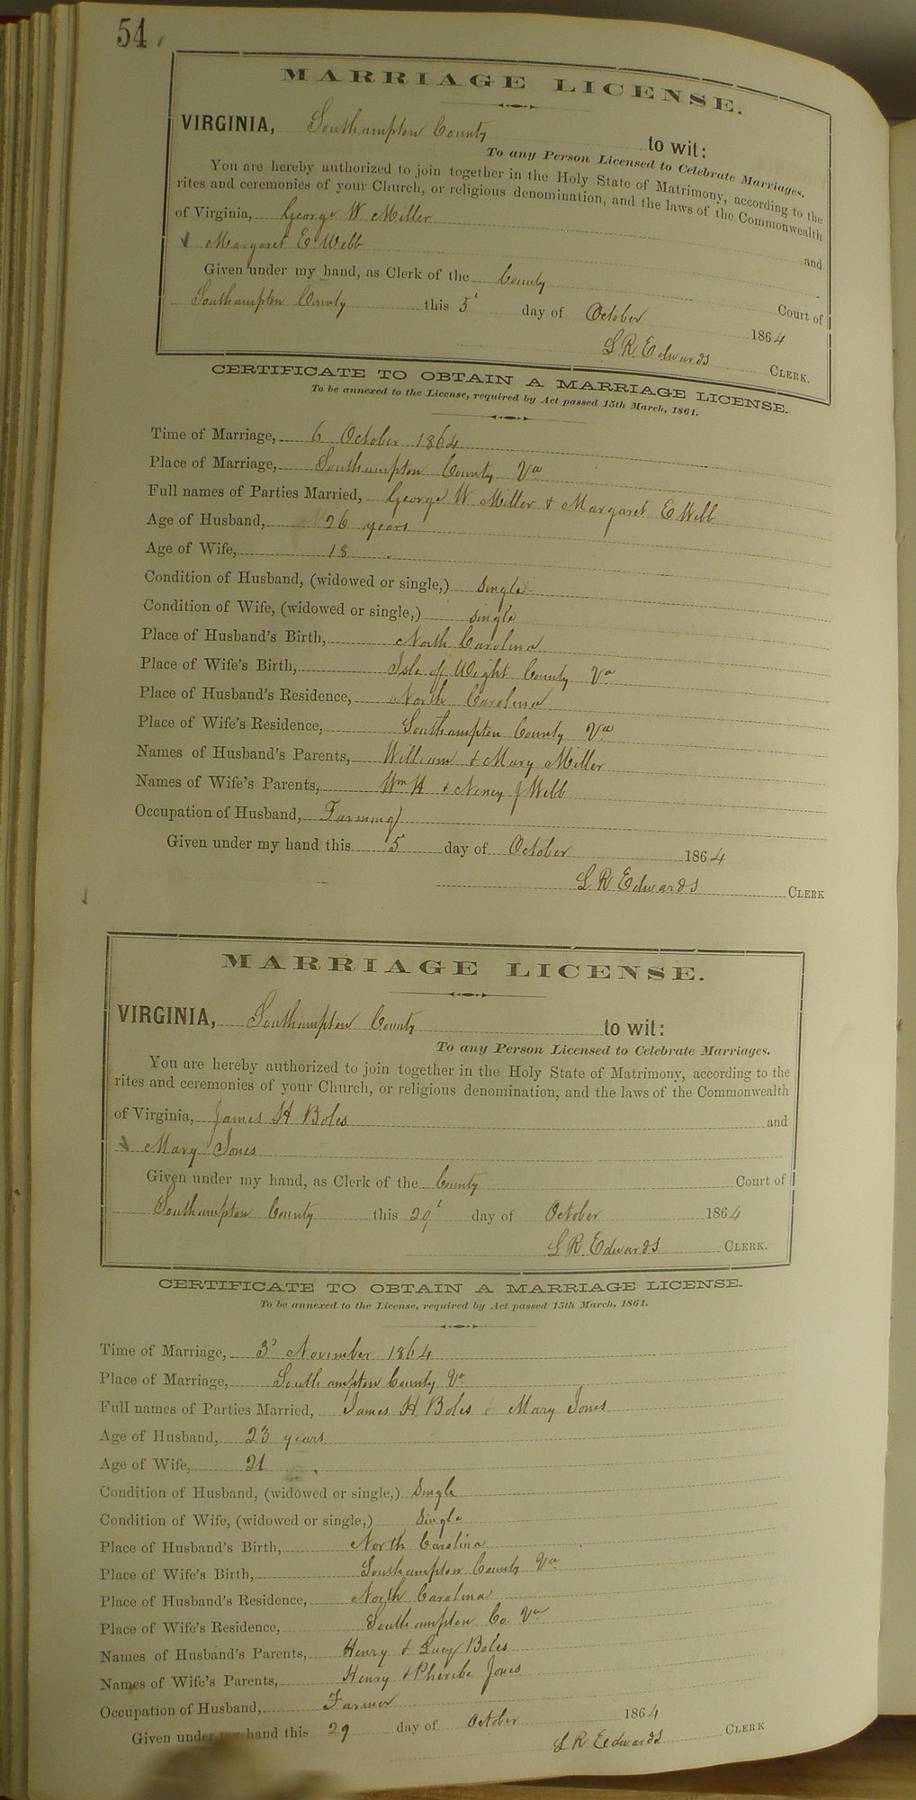 54
MARRIAGE LICENSE.
VIRGINIA, Southampton County to wit:
To any Person Licensed to Celebrate Marriages.
You are hereby authorized to join together in the Holy State of Matrimony, according to the
rites and ceremonies of your Church, or religious denomination, and the laws of the Commonwealth
of Virginia, George W Miller and
Margaret E Webb
Given under my hand, as Clerk of the County Court of
Southampton County this 5 day of October 1864
L R Edwards CLERK.
CERTIFICATE TO OBTAIN A MARRIAGE LICENSE.
To be annexed to the License, required by Act passed 15th March, 1861.
Time of Marriage, 6 October 1864
Place of Marriage, Southampton County Va
Full names of Parties Married, George W Miller & Margaret E Webb
Age of Husband, 26 years
Age of Wife, 18
Condition of Husband, (widowed or single,) Single
Condition of Wife, (widowed or single,) single
Place of Husband's Birth, North Carolina
Place of Wife's Birth, Isle of Wight County Va
Place of Husband's Residence, North Carolina
Place of Wife's Residence, Southampton County Va
Names of Husband's Parents, William & Mary Miller
Names of Wife's Parents, Wm H & Nancy J Webb
Occupation of Husband, Farming
Given under my hand this 5 day of October 1864
L R Edwards CLERK
MARRIAGE LICENSE.
VIRGINIA, Southampton County to wit:
To any Person Licensed to Celebrate Marriages.
You are hereby authorized to join together in the Holy State of Matrimony, according to the
rites and ceremonies of your Church, or religious denomination, and the laws of the Commonwealth
of Virginia, James H Boles and
Mary Jones
Given under my hand, as Clerk of the County Court of
Southampton County this 29 day of October 1864
L R Edwards CLERK.
CERTIFICATE TO OBTAIN A MARRIAGE LICENSE.
To be annexed to the License, required by Act passed 15th March, 1861.
Time of Marriage, 3 November 1864
Place of Marriage, Southampton County Va
Full names of Parties Married, James H Boles & Mary Jones
Age of Husband, 23 years
Age of Wife, 21
Condition of Husband, (widowed or single,) Single
Condition of Wife, (widowed or single,) Single
Place of Husband's Birth, North Carolina
Place of Wife's Birth, Southampton County Va
Place of Husband's Residence, North Carolina
Place of Wife's Residence, Southampton Co Va
Names of Husband's Parents, Henry & Lucy Boles
Names of Wife's Parents, Henry & Pherebe Jones
Occupation of Husband, Farmer
Given under my hand this 29 day of October 1864
L R Edwards CLERK